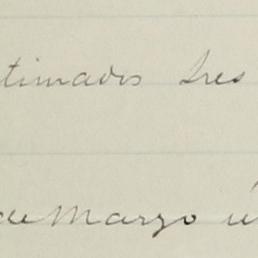 timados Sres
de Marzo ú